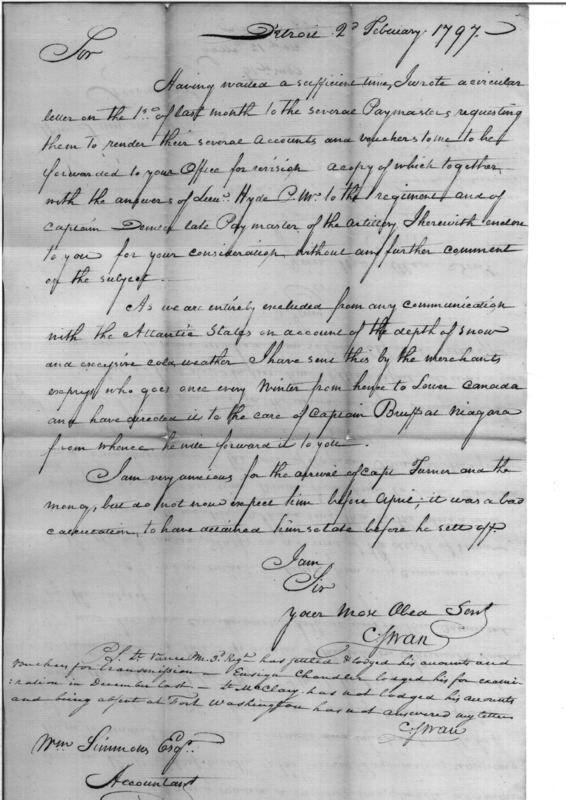 Detroit 2d February 1797.
Sir
Having waited a sufficient time, I wrote a circular
letter on the 1st of last month to the several Paymasters requesting
them to render their several accounts and vouchers to me to be
forwarded to your Office for revision a copy of which together
with the answers of Lieut. Hyde P. Mr. to the regiment and of
Captain late Paymaster of the Artillery I herewith enclose
to you for your consideration without any further comment
on the subject.
As we are entirely excluded from any communication
with the Atlantic States on account of the depth of snow
and excessive cold weather I have sent this by the merchants
express who goes once every Winter from hence to Lower Canada
and have directed it to the care of Captain Bruff at Niagara
from whence he will forward it to you.
I am very anxious for the arrival of Capt Turner and the
money, but do not now expect him before April; it was a bad
calculation, to have detained him so late before he sett off.
I am
Sir
your Most Obed Servt
C. Swan
P.S. Lt. Vance P. M. 3d. Regt. has settled & lodged his accounts and
vouchers for transmission – Ensign Chandler lodged his for exami-
nation in December last – Lt. McClary has not lodged his accounts
and being absent at Fort Washington has not answered my letter
C. Swan
Wm. Simmons Esqr.
Accountant